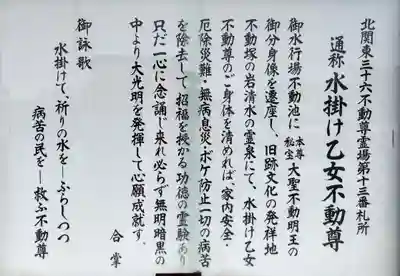 北関東三十六不動尊霊場第十三番札所
通称 水掛け乙女不動尊
御水行場不動池に本尊秘宝大聖不動明王の
御分身像を遷座し、旧跡文化の発祥地
不動塚の岩清水の霊泉にて、水掛け乙女
不動尊のご身体を清めれば、家内安全・
厄除災難・無病息災・ボケ防止一切の病苦
を除去して、招福を授かる功徳の霊験あり
只だ一心に念誦し来れ必らず無明暗黒の
中より大光明を発揮して心願成就す。
合掌
御詠歌
水掛けて、祈りの水を―ふらしつつ
病苦の民を―救ふ不動尊